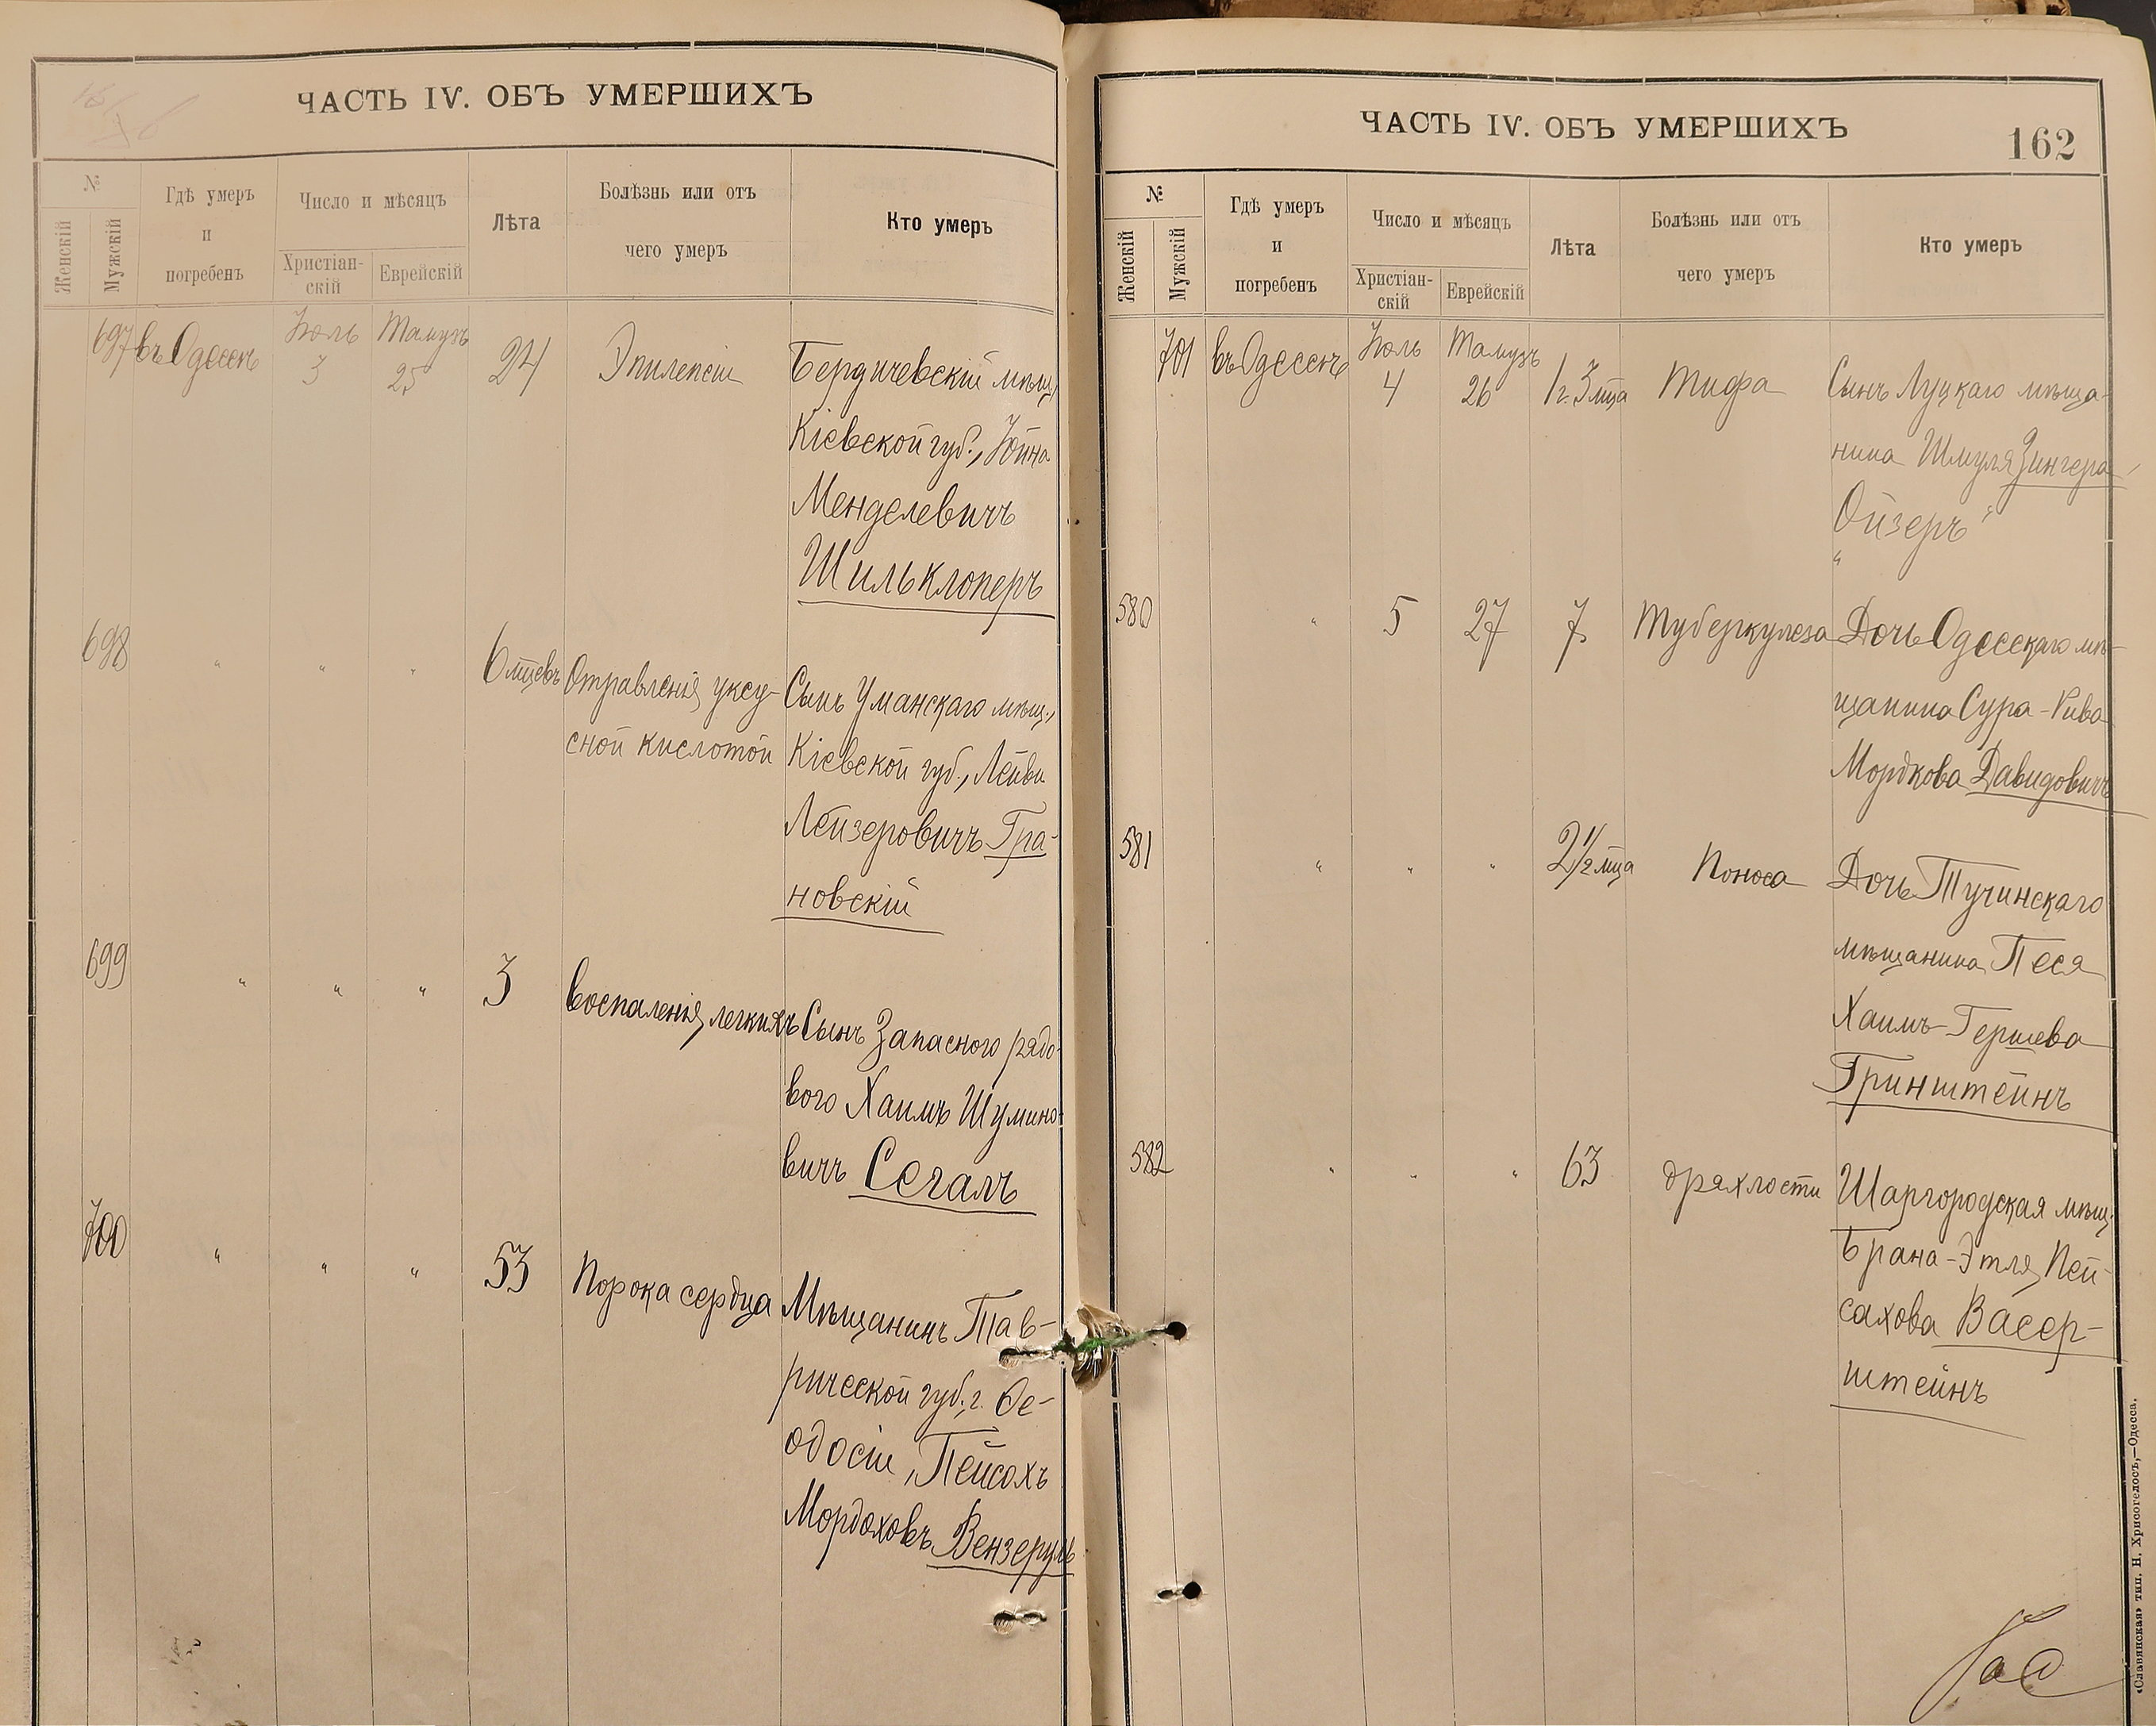 ЧАСТЬ IV. ОБЪ УМЕРШИХЪ
№
Женскій
Мужскій
Гдѣ умеръ
и
погребенъ
Число и мѣсяцъ
Христіан-
скій
Еврейскій
Лѣта
Болѣзнь или отъ
чего умеръ
Кто умеръ
697 въ Одессѣ Іюль 3 Тамузъ 25 24 Эпилепсіи Бердичевскій мѣщ.
Кіевской губ., Іойна
Менделевичъ
Шильклоперъ
698 " " " 6 мцевъ Отравленія уксу-
сной кислотой
Сынъ Уманскаго мѣщ.,
Кіевской губ., Лейви
Лейзеровичъ Гра-
новскій
699 " " " 3 воспаленія легкихъ Сынъ Запасного рядо-
вого Хаимъ Шумино-
вичъ Сегалъ
700 " " " 53 Порока сердца Мѣщанинъ Тав-
рической губ., г. Ѳе-
одосіи, Пейсохъ
Мордоховъ Вензеруль
ЧАСТЬ IV. ОБЪ УМЕРШИХЪ
162
№
Женскій
Мужскій
Гдѣ умеръ
и
погребенъ
Число и мѣсяцъ
Христіан-
скій
Еврейскій
Лѣта
Болѣзнь или отъ
чего умеръ
Кто умеръ
701 въ Одессѣ Іюль 4 Тамузъ 26 1 г. 3 мца Тифа Сынъ Луцкаго мѣща-
нина Шмуля Зингера
"Ойзеръ"
580 " 5 27 7 Туберкулеза Дочь Одесскаго мѣ-
щанина Сура-Рива
Мордкова Давидовичъ
581 " " " 2 1/2 мца Поноса Дочь Тучинскаго
мѣщанина Песя
Хаимъ-Гершева
Гринштейнъ
582 " " " 63 дряхлости Шаргородская мѣщ.
Брана-Этля Пей-
сахова Васер-
штейнъ
«Славянская» тип. Н. Хрисогелосъ,—Одесса.